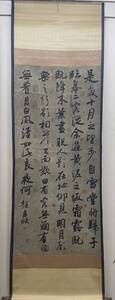 是歲十月之望步自雪堂將歸于
臨皋二客從余過黃泥之坂霜露
既降木葉盡脫人影在地仰見明月顧而
樂之行歌相答已而歎曰有客無酒有酒
無肴月白風清如此良夜何